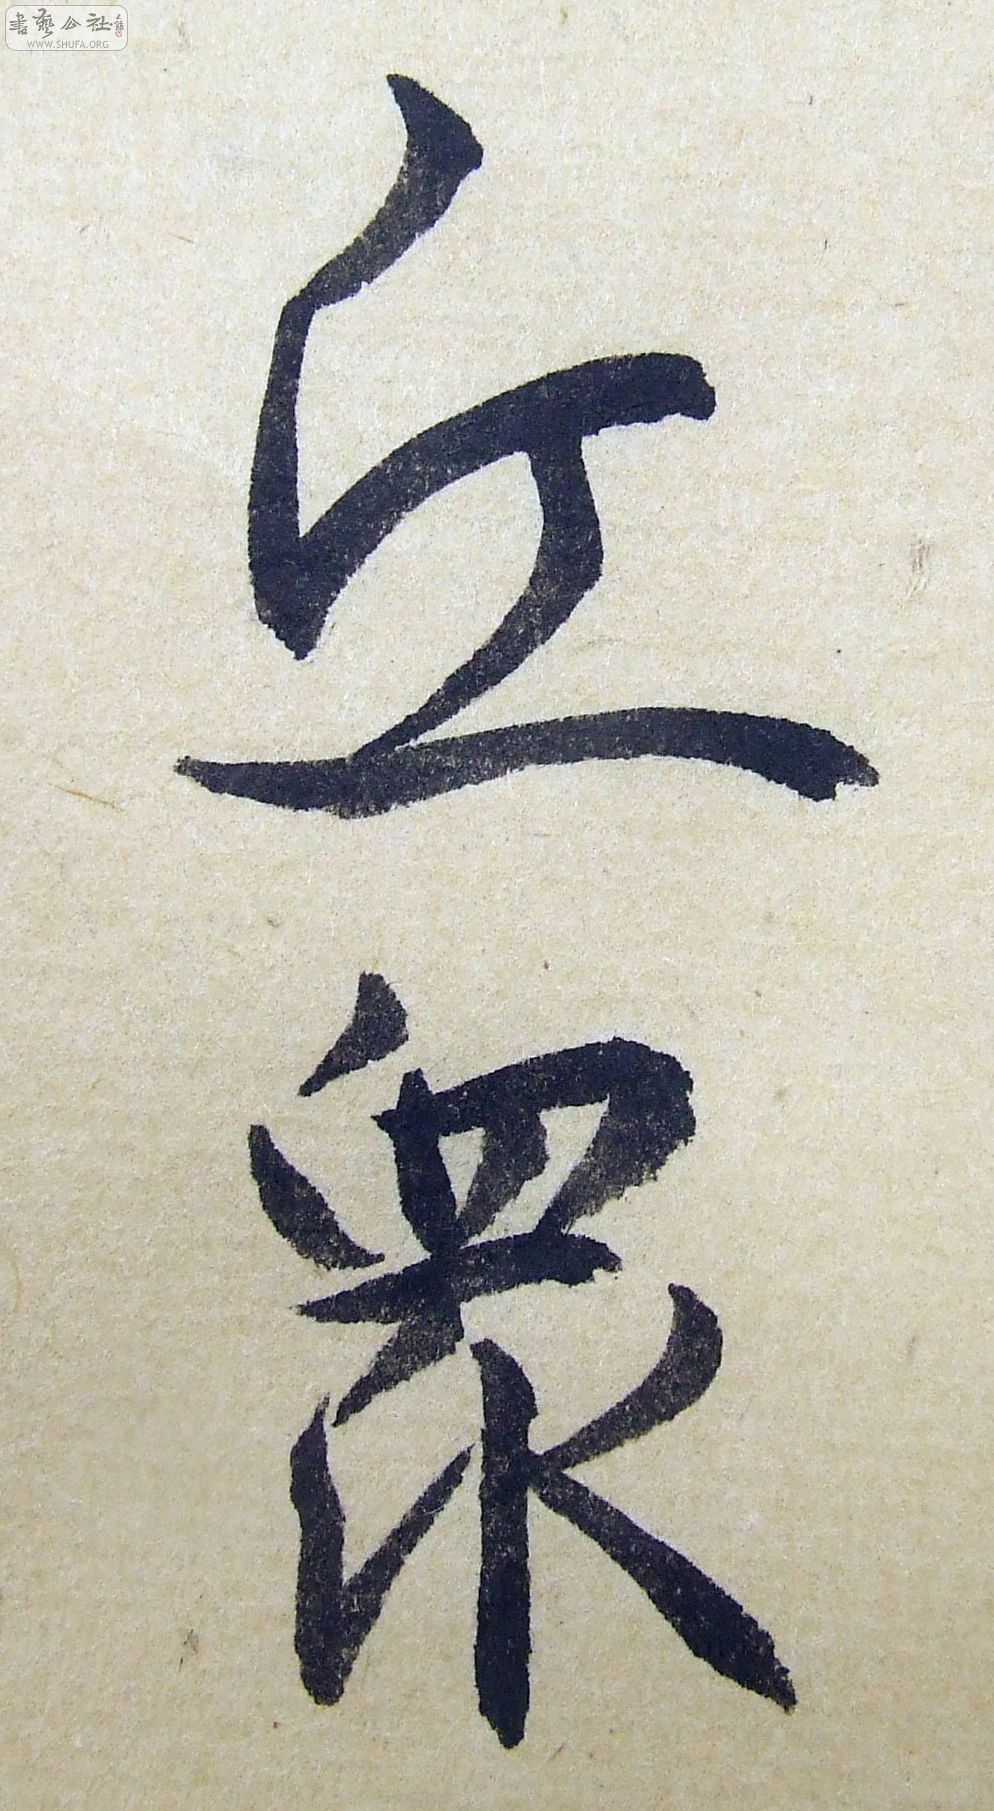 書藝公社
WWW.SHUFA.ORG
丘眾